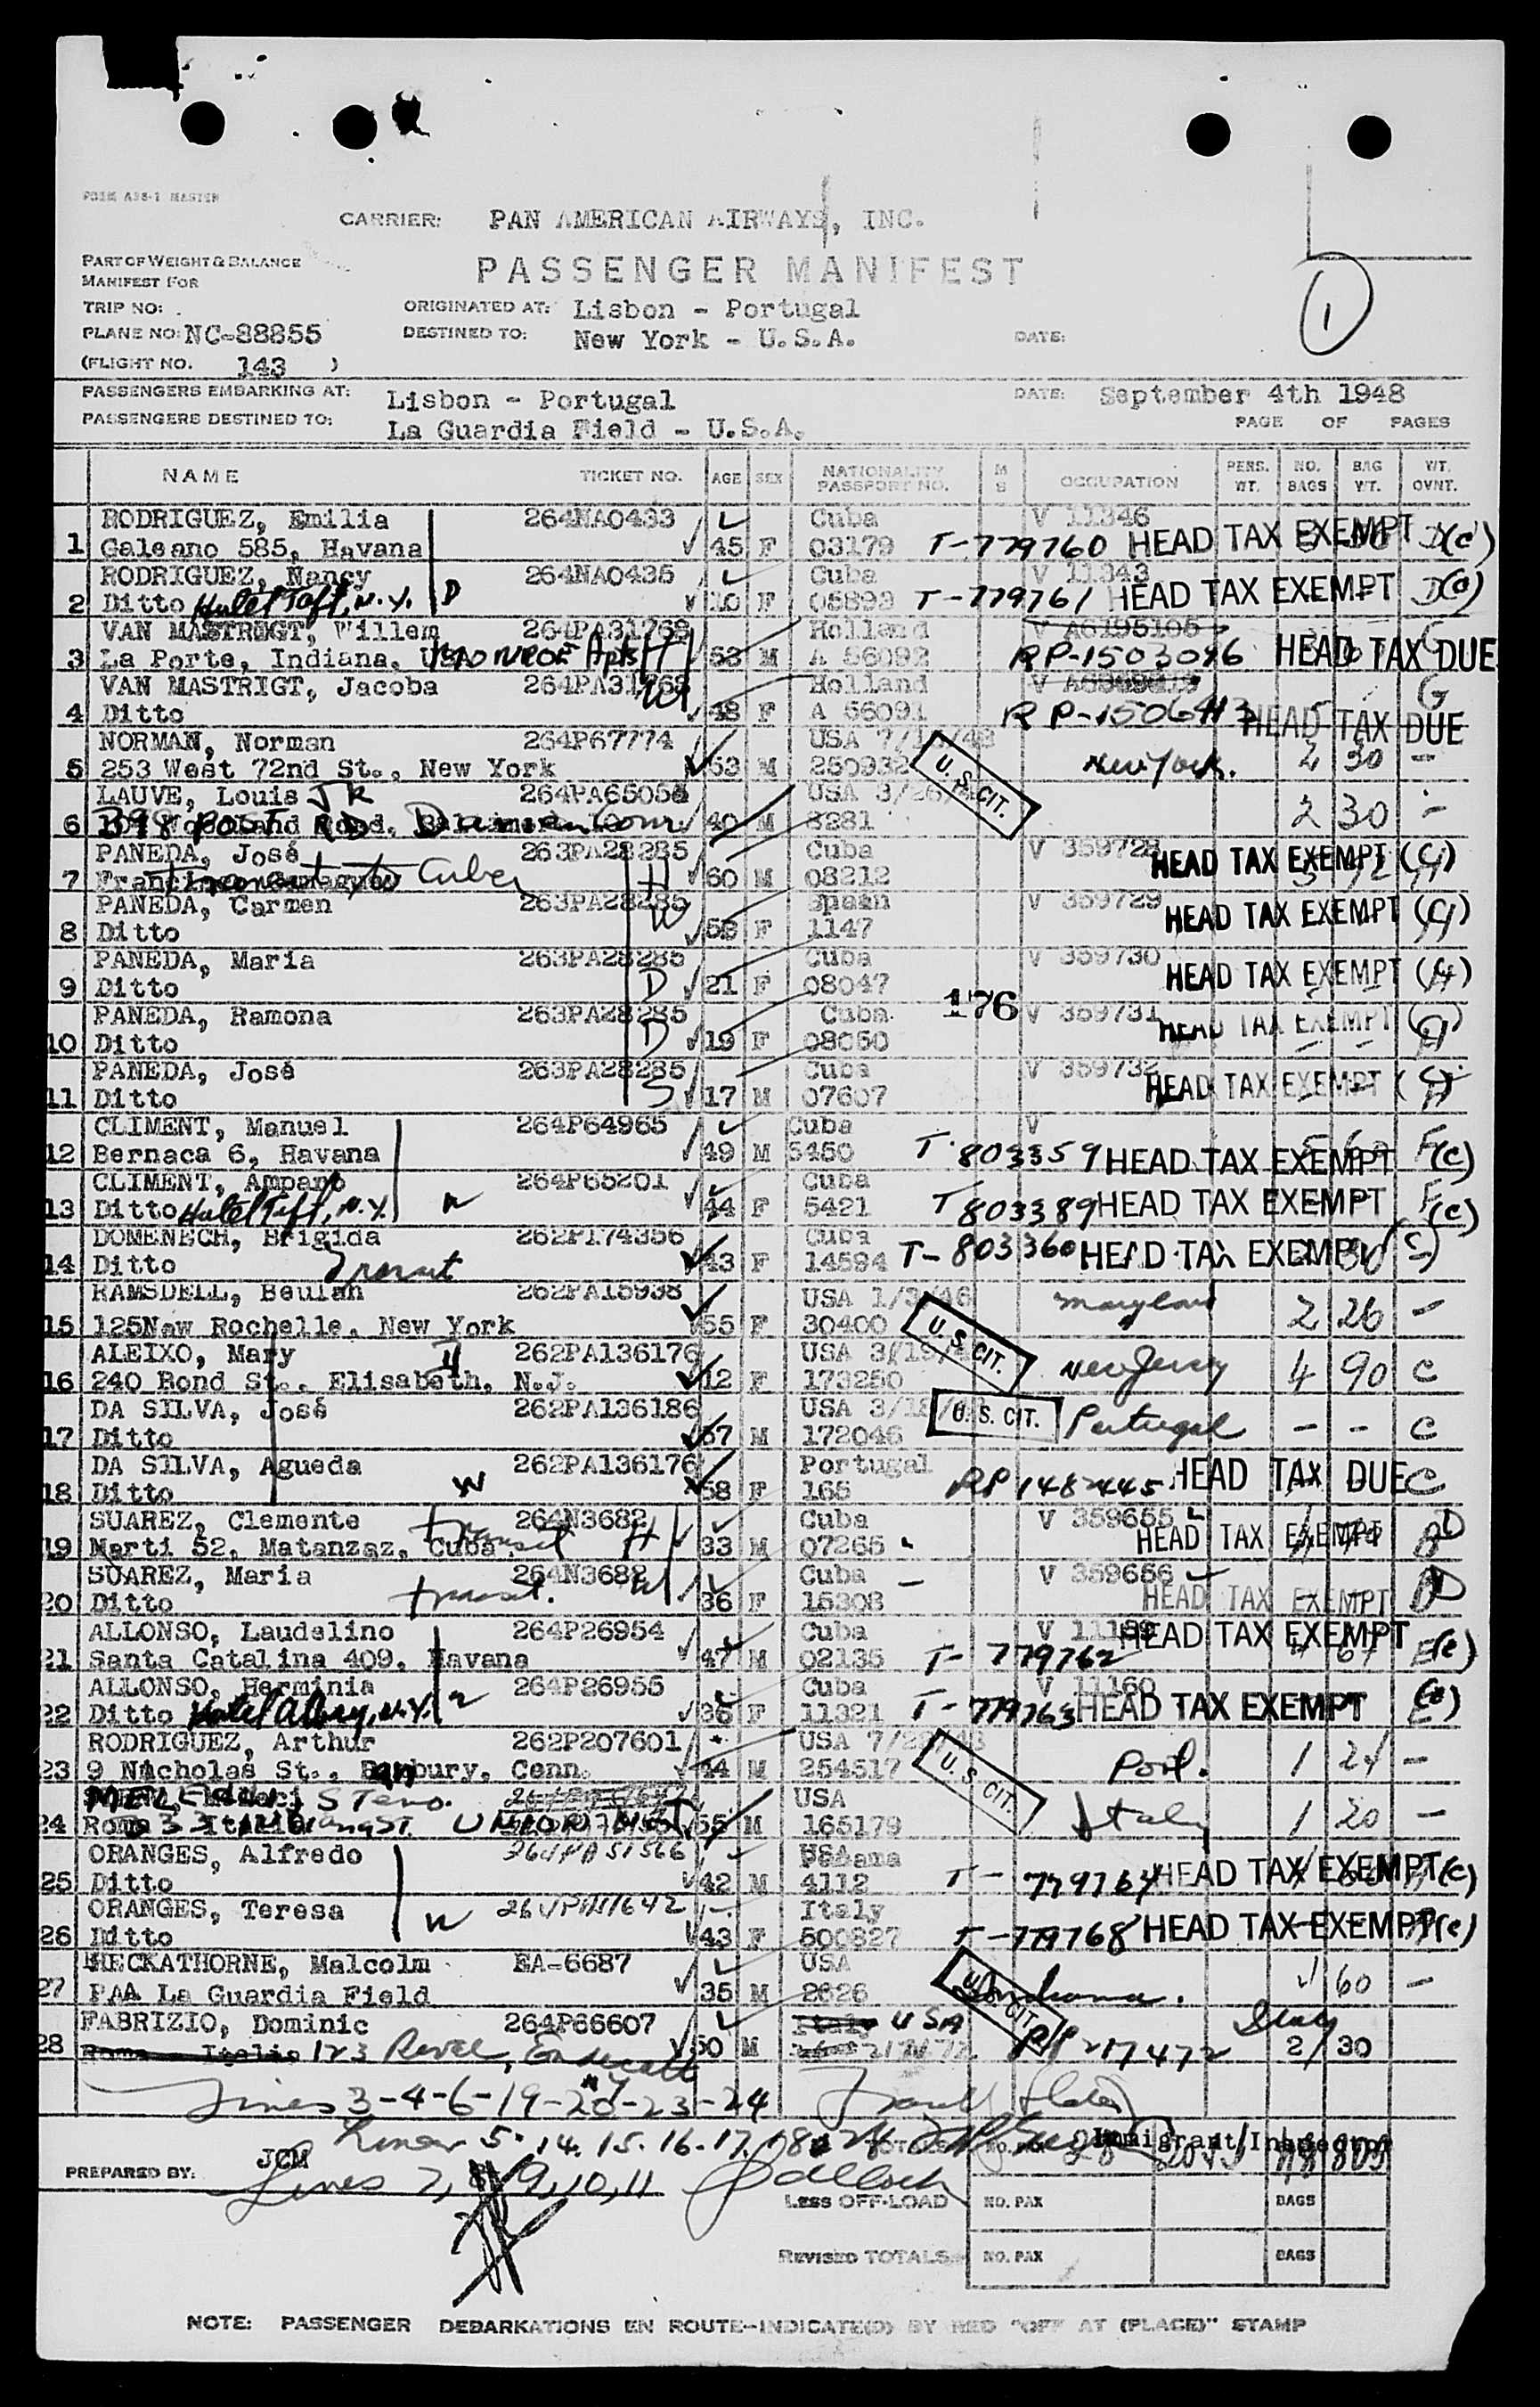 FORM A38-1 MASTER
CARRIER: PAN AMERICAN AIRWAYS, INC.
PART OF WEIGHT & BALANCE
MANIFEST FOR
PASSENGER MANIFEST
1
TRIP NO:
ORIGINATED AT: Lisbon - Portugal
PLANE NO: NC-88855
DESTINED TO: New York - U.S.A. DATE:
(FLIGHT NO. 143 )
PASSENGERS EMBARKING AT: Lisbon - Portugal DATE: September 4th 1948
PASSENGERS DESTINED TO: La Guardia Field - U.S.A. PAGE OF PAGES
NAME TICKET NO. AGE SEX NATIONALITY PASSPORT NO. M S OCCUPATION PERS. WT. NO. BAGS BAG WT. WT. OVNT.
RODRIGUEZ, Emilia 264NA0433 Cuba V 11346
1 Galeano 585, Havana 45 F 03179 T-779760 HEAD TAX EXEMPT D(c)
RODRIGUEZ, Nancy 264NA0435 Cuba V 11343
2 Ditto Hotel Taft, N.Y. D 10 F 05899 T-779761 HEAD TAX EXEMPT D(c)
VAN MASTRIGT, Willem 264PA31768 Holland V A6195105 G
3 La Porte, Indiana, MONROE Apts H 53 M A 56092 RP-1503046 HEAD TAX DUE
VAN MASTRIGT, Jacoba 264PA31768 Holland G
4 Ditto W 48 F A 56091 RP-1506413 HEAD TAX DUE
NORMAN, Norman 264P67774 USA
5 253 West 72nd St., New York 53 M 250932 U.S. CIT. New York. 2 30 -
LAUVE, Louis JR 264PA65055 USA
6 398 POST RD Darien Conn 40 M 8281 2 30 -
PANEDA, José 263PA28285 Cuba V 359728
7 Transit to Cuba H 60 M 08212 HEAD TAX EXEMPT (G)
PANEDA, Carmen 263PA28285 Spain V 359729
8 Ditto W 58 F 1147 HEAD TAX EXEMPT (G)
PANEDA, Maria 263PA28285 Cuba V 359730
9 Ditto D 21 F 08047 HEAD TAX EXEMPT (G)
PANEDA, Ramona 263PA28285 Cuba 176 V 359731
10 Ditto D 19 F 08050 HEAD TAX EXEMPT (G)
PANEDA, José 263PA28285 Cuba V 359732
11 Ditto S 17 M 07607 HEAD TAX EXEMPT (G)
CLIMENT, Manuel 264P64965 Cuba V
12 Bernaca 6, Havana 49 M 5450 T-803359 HEAD TAX EXEMPT F(c)
CLIMENT, Amparo 264P65201 Cuba
13 Ditto Hotel Taft, N.Y. W 44 F 5421 T 803389 HEAD TAX EXEMPT F(c)
DOMENECH, Brigida 262P174356 Cuba
14 Ditto Transit 43 F 14594 T-803360 HEAD TAX EXEMPT (c)
RAMSDELL, Beulah 262PA15938 USA
15 125New Rochelle, New York 55 F 30400 U.S. CIT. Maryland 2 26 -
ALEIXO, Mary 262PA136176 USA
16 240 Bond St., Elisabeth, N.J. 12 F 173250 U.S. CIT. New Jersey 4 90 C
DA SILVA, José H 262PA136186 USA
17 Ditto 57 M 172046 U.S. CIT. Portugal - - C
DA SILVA, Agueda 262PA136176 Portugal
18 Ditto W 58 F 165 RP 1482445 HEAD TAX DUE C
SUAREZ, Clemente 264N3682 Cuba V 359655
19 Marti 52, Matanzaz, Cuba transit H 33 M 07265 HEAD TAX EXEMPT D
SUAREZ, Maria 264N3682 Cuba V 359656
20 Ditto transit. W 36 F 15303 HEAD TAX EXEMPT D
ALLONSO, Laudelino 264P26954 Cuba
21 Santa Catalina 409, Havana 47 M 02135 T-779762 HEAD TAX EXEMPT E(c)
ALLONSO, Herminia 264P26955 Cuba V 11160
22 Ditto Hotel Albey, N.Y. W 36 F 11321 T-779763 HEAD TAX EXEMPT E(c)
RODRIGUEZ, Arthur 262P207601 USA
23 9 Nicholas St., Danbury, Conn. 44 M 254517 U.S. CIT. Port. 1 24 -
STENO. USA
24 UNION 55 M 165179 Italy 1 20 -
ORANGES, Alfredo 264PA51566 Panama
25 Ditto 42 M 4112 T-779764 HEAD TAX EXEMPT (c)
ORANGES, Teresa 264PA51642 Italy
26 Ditto W 43 F 500827 T-779768 HEAD TAX EXEMPT (c)
HECKATHORNE, Malcolm EA-6687 USA
27 PAA La Guardia Field 35 M 2626 U.S. CIT. Indiana. 60 -
FABRIZIO, Dominic 264P66607 Italy USA Italy
28 Roma - Italia 123 50 M P/P 217472 2 30
Lines 3-4-6-19-20-23-24
Lines 5-14-15-16-17-18 TOTALS NO. PAX 28 Immigrant Inspector
PREPARED BY: JCM Lines 7, 8, 9, 10, 11
LESS OFF-LOAD NO. PAX BAGS
REVISED TOTALS NO. PAX BAGS
NOTE: PASSENGER DEBARKATIONS EN ROUTE-INDICATE(D) BY RED "OFF AT (PLACE)" STAMP